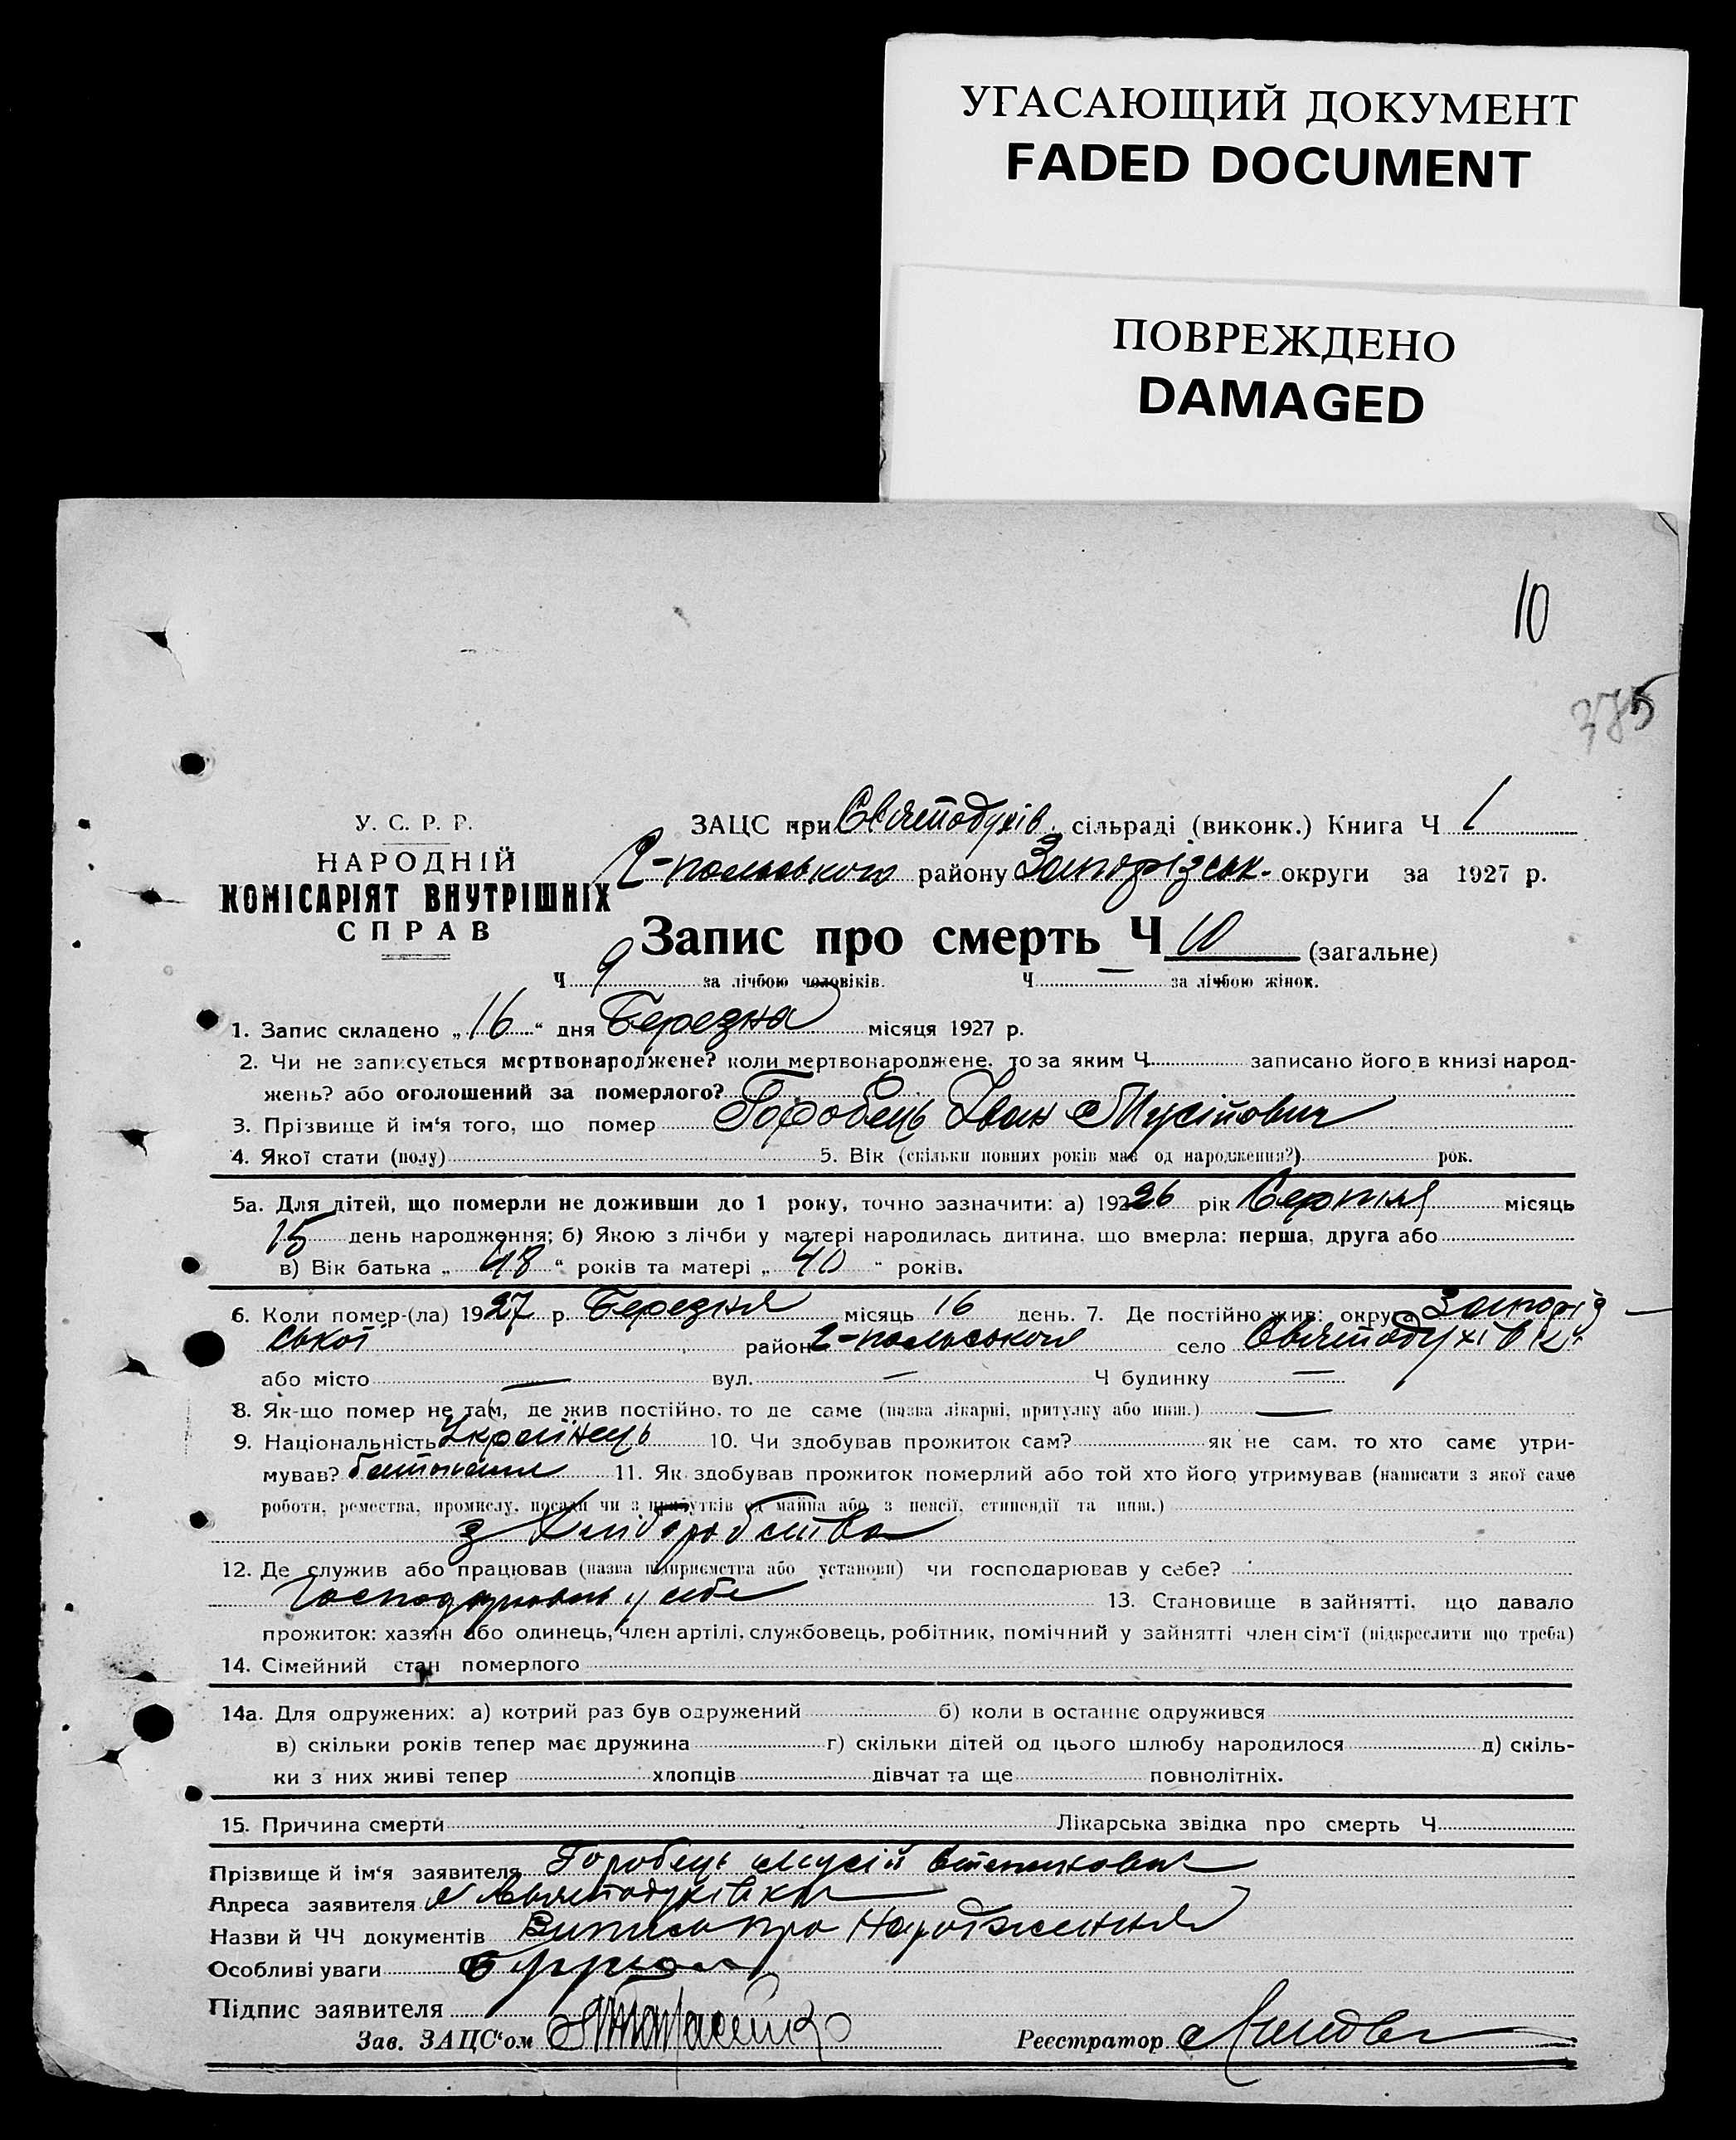 УГАСАЮЩИЙ ДОКУМЕНТ
FADED DOCUMENT
ПОВРЕЖДЕНО
DAMAGED
10
375
У. С. Р. Р.
НАРОДНІЙ
КОМІСАРІЯТ ВНУТРІШНІХ
СПРАВ
ЗАЦС при Святодухів. сільраді (виконк.) Книга Ч 1
2-польського району Запорізськ. округи за 1927 р.
Запис про смерть Ч 10 (загальне)
Ч 9 за лічбою чоловіків. Ч — за лічбою жінок.
1. Запис складено „16“ дня Березна місяця 1927 р.
2. Чи не записується мертвонароджене? коли мертвонароджене, то за яким Ч записано його в книзі народ-
жень? або оголошений за померлого?
3. Прізвище й ім‘я того, що помер Горобець Іван Мусійович
4. Якої стати (полу) 5. Вік (скільки повних років має од народження?) рок.
5а. Для дітей, що померли не доживши до 1 року, точно зазначити: а) 19226 рік Серпня місяць
15 день народження; б) Якою з лічби у матері народилась дитина, що вмерла: перша, друга або
в) Вік батька „48“ років та матері „40“ років.
6. Коли помер-(ла) 1927 р. Березня місяць 16 день. 7. Де постійно жив: округа Запоріз
ської район 2-польського село Святодухівк.
або місто — вул. — Ч будинку —
8. Як-що помер не там, де жив постійно, то де саме (назва лікарні, притулку або инш.) —
9. Національність Українець 10. Чи здобував прожиток сам? як не сам, то хто саме утри-
мував? 11. Як здобував прожиток померлий або той хто його утримував (написати з якої саме
роботи, ремества, промислу, посади чи з прибутків од майна або з пенсії, стипендії та инш.)
з Хліборобства
12. Де служив або працював (назва підприємства або установи) чи господарював у себе?
Господарював у себе 13. Становище в зайнятті, що давало
прожиток: хазяїн або одинець, член артілі, службовець, робітник, помічний у зайнятті член сім‘ї (підкреслити що треба)
14. Сімейний стан померлого
14а. Для одружених: а) котрий раз був одружений б) коли в останнє одружився
в) скільки років тепер має дружина г) скільки дітей од цього шлюбу народилося д) скіль-
ки з них живі тепер хлопців дівчат та ще повнолітніх.
15. Причина смерти Лікарська звідка про смерть Ч
Прізвище й ім‘я заявителя Горобець Мусій
Адреса заявителя с Святодухівка
Назви й ЧЧ документів Виписъ про Народження
Особливі уваги
Підпис заявителя
Зав. ЗАЦС‘ом Реєстратор